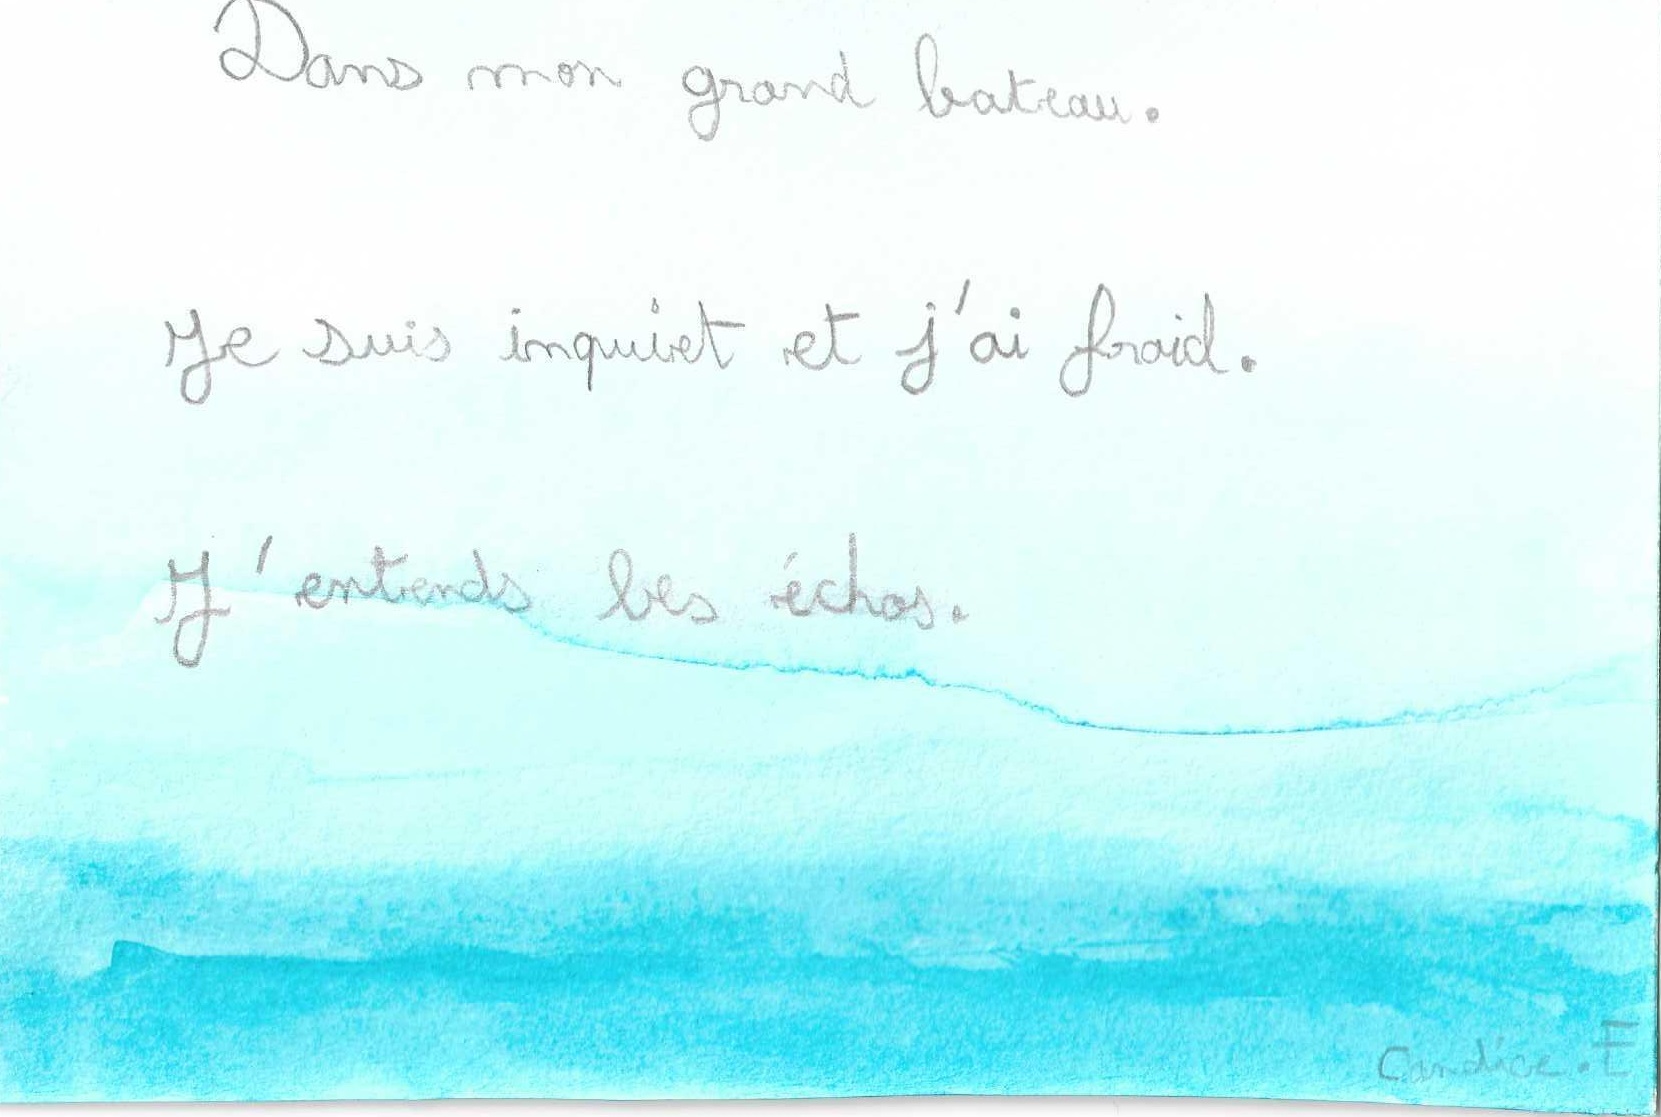 Dans mon grand bateau.
Je suis inquiet et j'ai froid.
J'entends les échos.
Candice.E